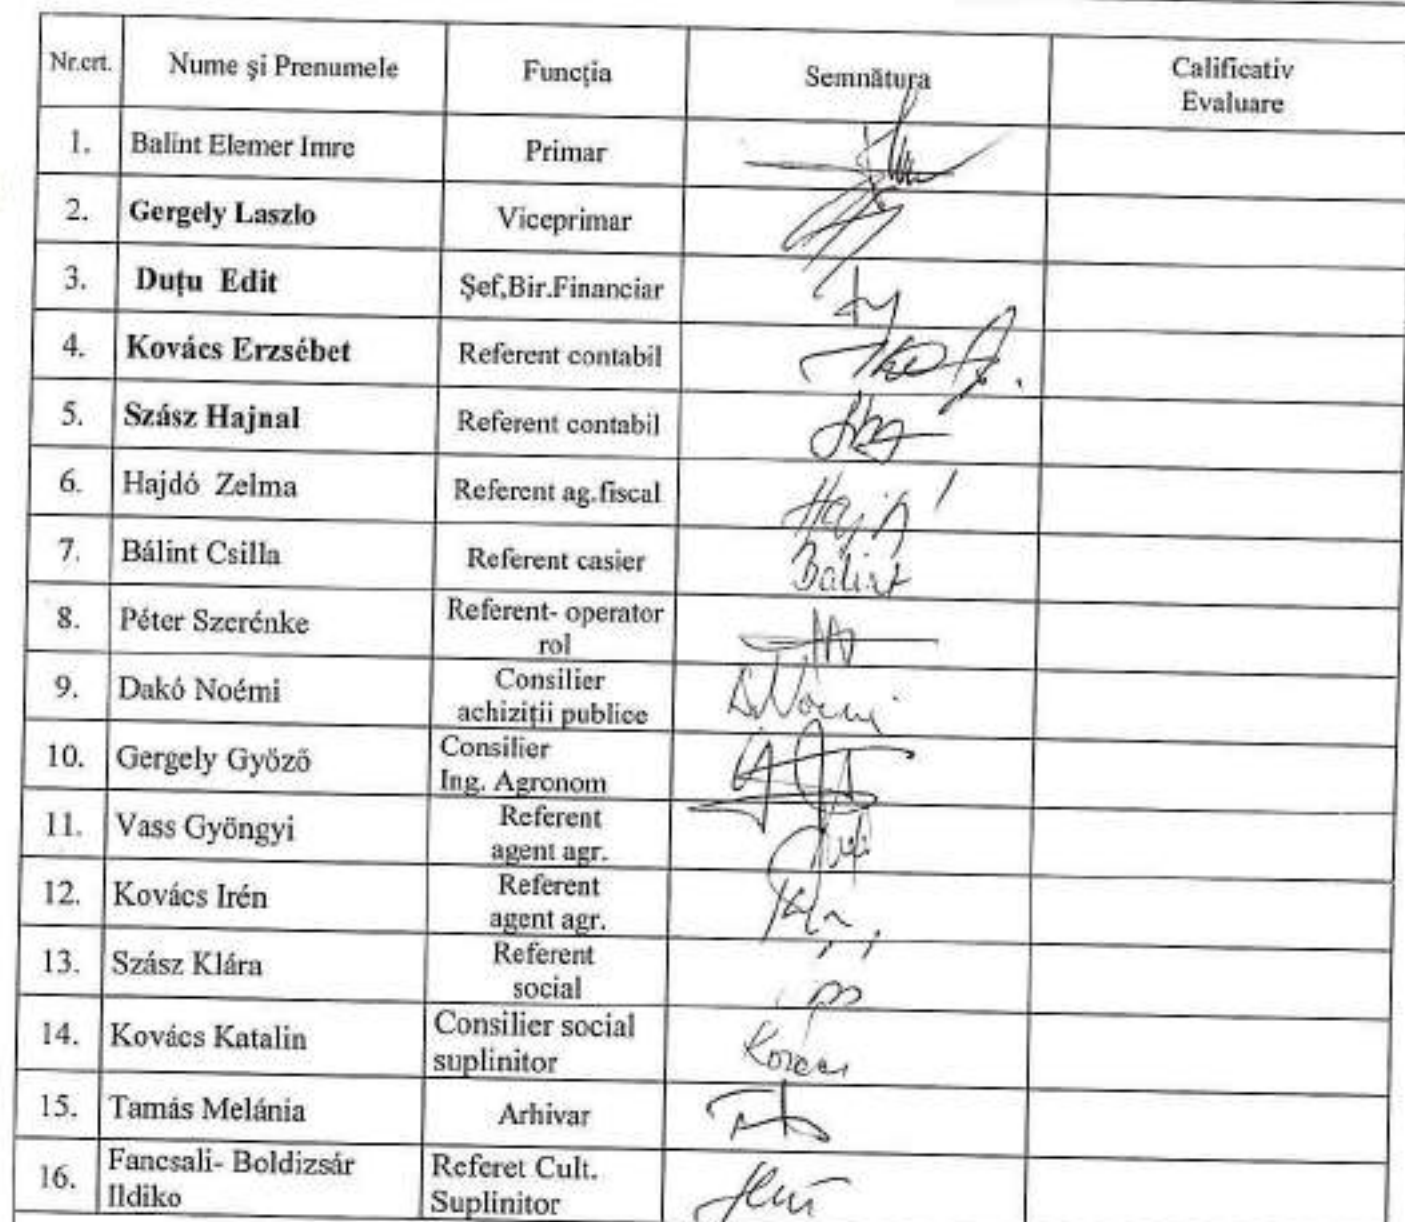 Nr.crt. Nume şi Prenumele Funcţia Semnătura Calificativ
Evaluare
1. Balint Elemer Imre Primar
2. Gergely Laszlo Viceprimar
3. Duţu Edit Şef,Bir.Financiar
4. Kovács Erzsébet Referent contabil
5. Szász Hajnal Referent contabil
6. Hajdó Zelma Referent ag.fiscal
7. Bálint Csilla Referent casier Bálint
8. Péter Szerénke Referent- operator
rol
9. Dakó Noémi Consilier
achiziţii publice
10. Gergely Győző Consilier
Ing. Agronom
11. Vass Gyöngyi Referent
agent agr.
12. Kovács Irén Referent
agent agr.
13. Szász Klára Referent
social
14. Kovács Katalin Consilier social
suplinitor
15. Tamás Melánia Arhivar
16. Fancsali- Boldizsár Referet Cult.
Ildiko Suplinitor